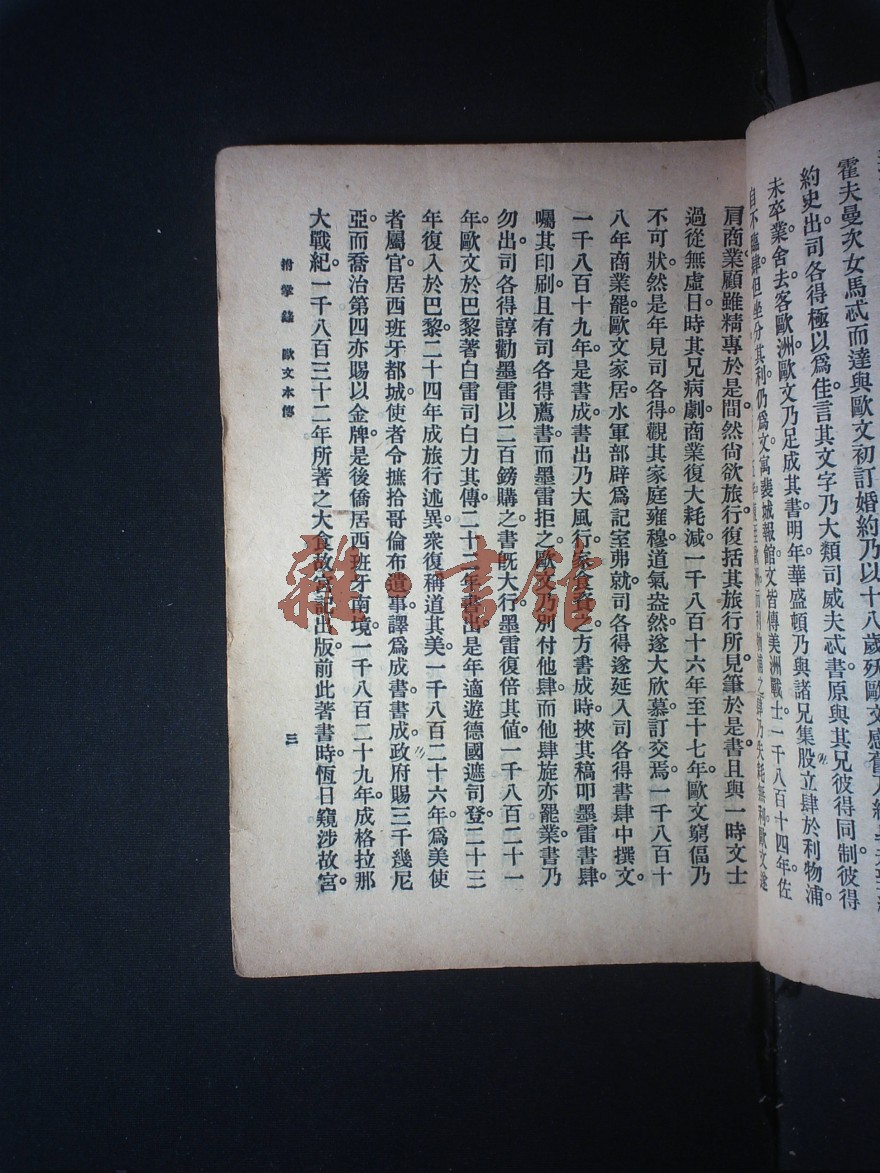 霍夫曼次女馬忒而達與歐文初訂婚約乃以十八歲歿歐文感舊
約史出司各得極以爲佳言其文字乃大類司威夫忒書原與其兄彼得同制彼得
未卒業舍去客歐洲歐文乃足成其書明年華盛頓乃與諸兄集股立肆於利物浦。
自不臨肆但坐分其利仍爲文寓斐城報館文皆傳美洲戰士一千八百十四年。佐
歐洲而利物浦之肆乃失耗無利歐文遂
肩商業顧雖精專於是間然尙欲旅行復括其旅行所見筆於是書且與一時文士
過從無虛日時其兄病劇商業復大耗減一千八百十六年至十七年歐文窮偪乃
不可狀然是年見司各得觀其家庭雍穆道氣盎然遂大欣慕訂交焉一千八百十
八年商業罷歐文家居水軍部辟爲記室弗就司各得遂延入司各得書肆中撰文
一千八百十九年是書成書出乃大風行家食資之方書成時挾其稿叩墨雷書肆
囑其印刷且有司各得薦書而墨雷拒之歐文乃別付他肆而他肆旋亦罷業書乃
勿出司各得諄勸墨雷以二百鎊購之書旣大行墨雷復倍其值一千八百二十一
年歐文於巴黎著白雷司白力其傳二十二年書出是年適遊德國遮司登二十三
年復入於巴黎二十四年成旅行述異衆復稱道其美一千八百二十六年爲美使
者屬官居西班牙都城使者令摭拾哥倫布遺事譯爲成書書成政府賜三千幾尼
亞而喬治第四亦賜以金牌是後僑居西班牙南境一千八百二十九年成格拉那
大戰紀一千八百三十二年所著之大食故宮記出版前此著書時恆日窺涉故宮。
拊掌錄 歐文本傳 三
雜·書館